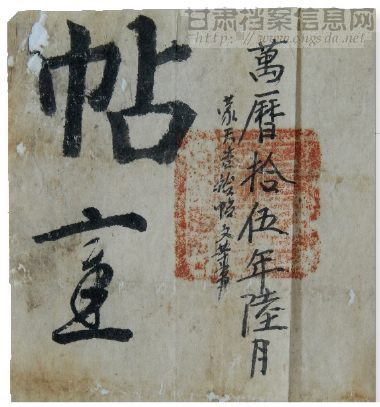 甘肃档案信息网
www.cngsda.net
萬曆拾伍年陸月
給帖文
帖